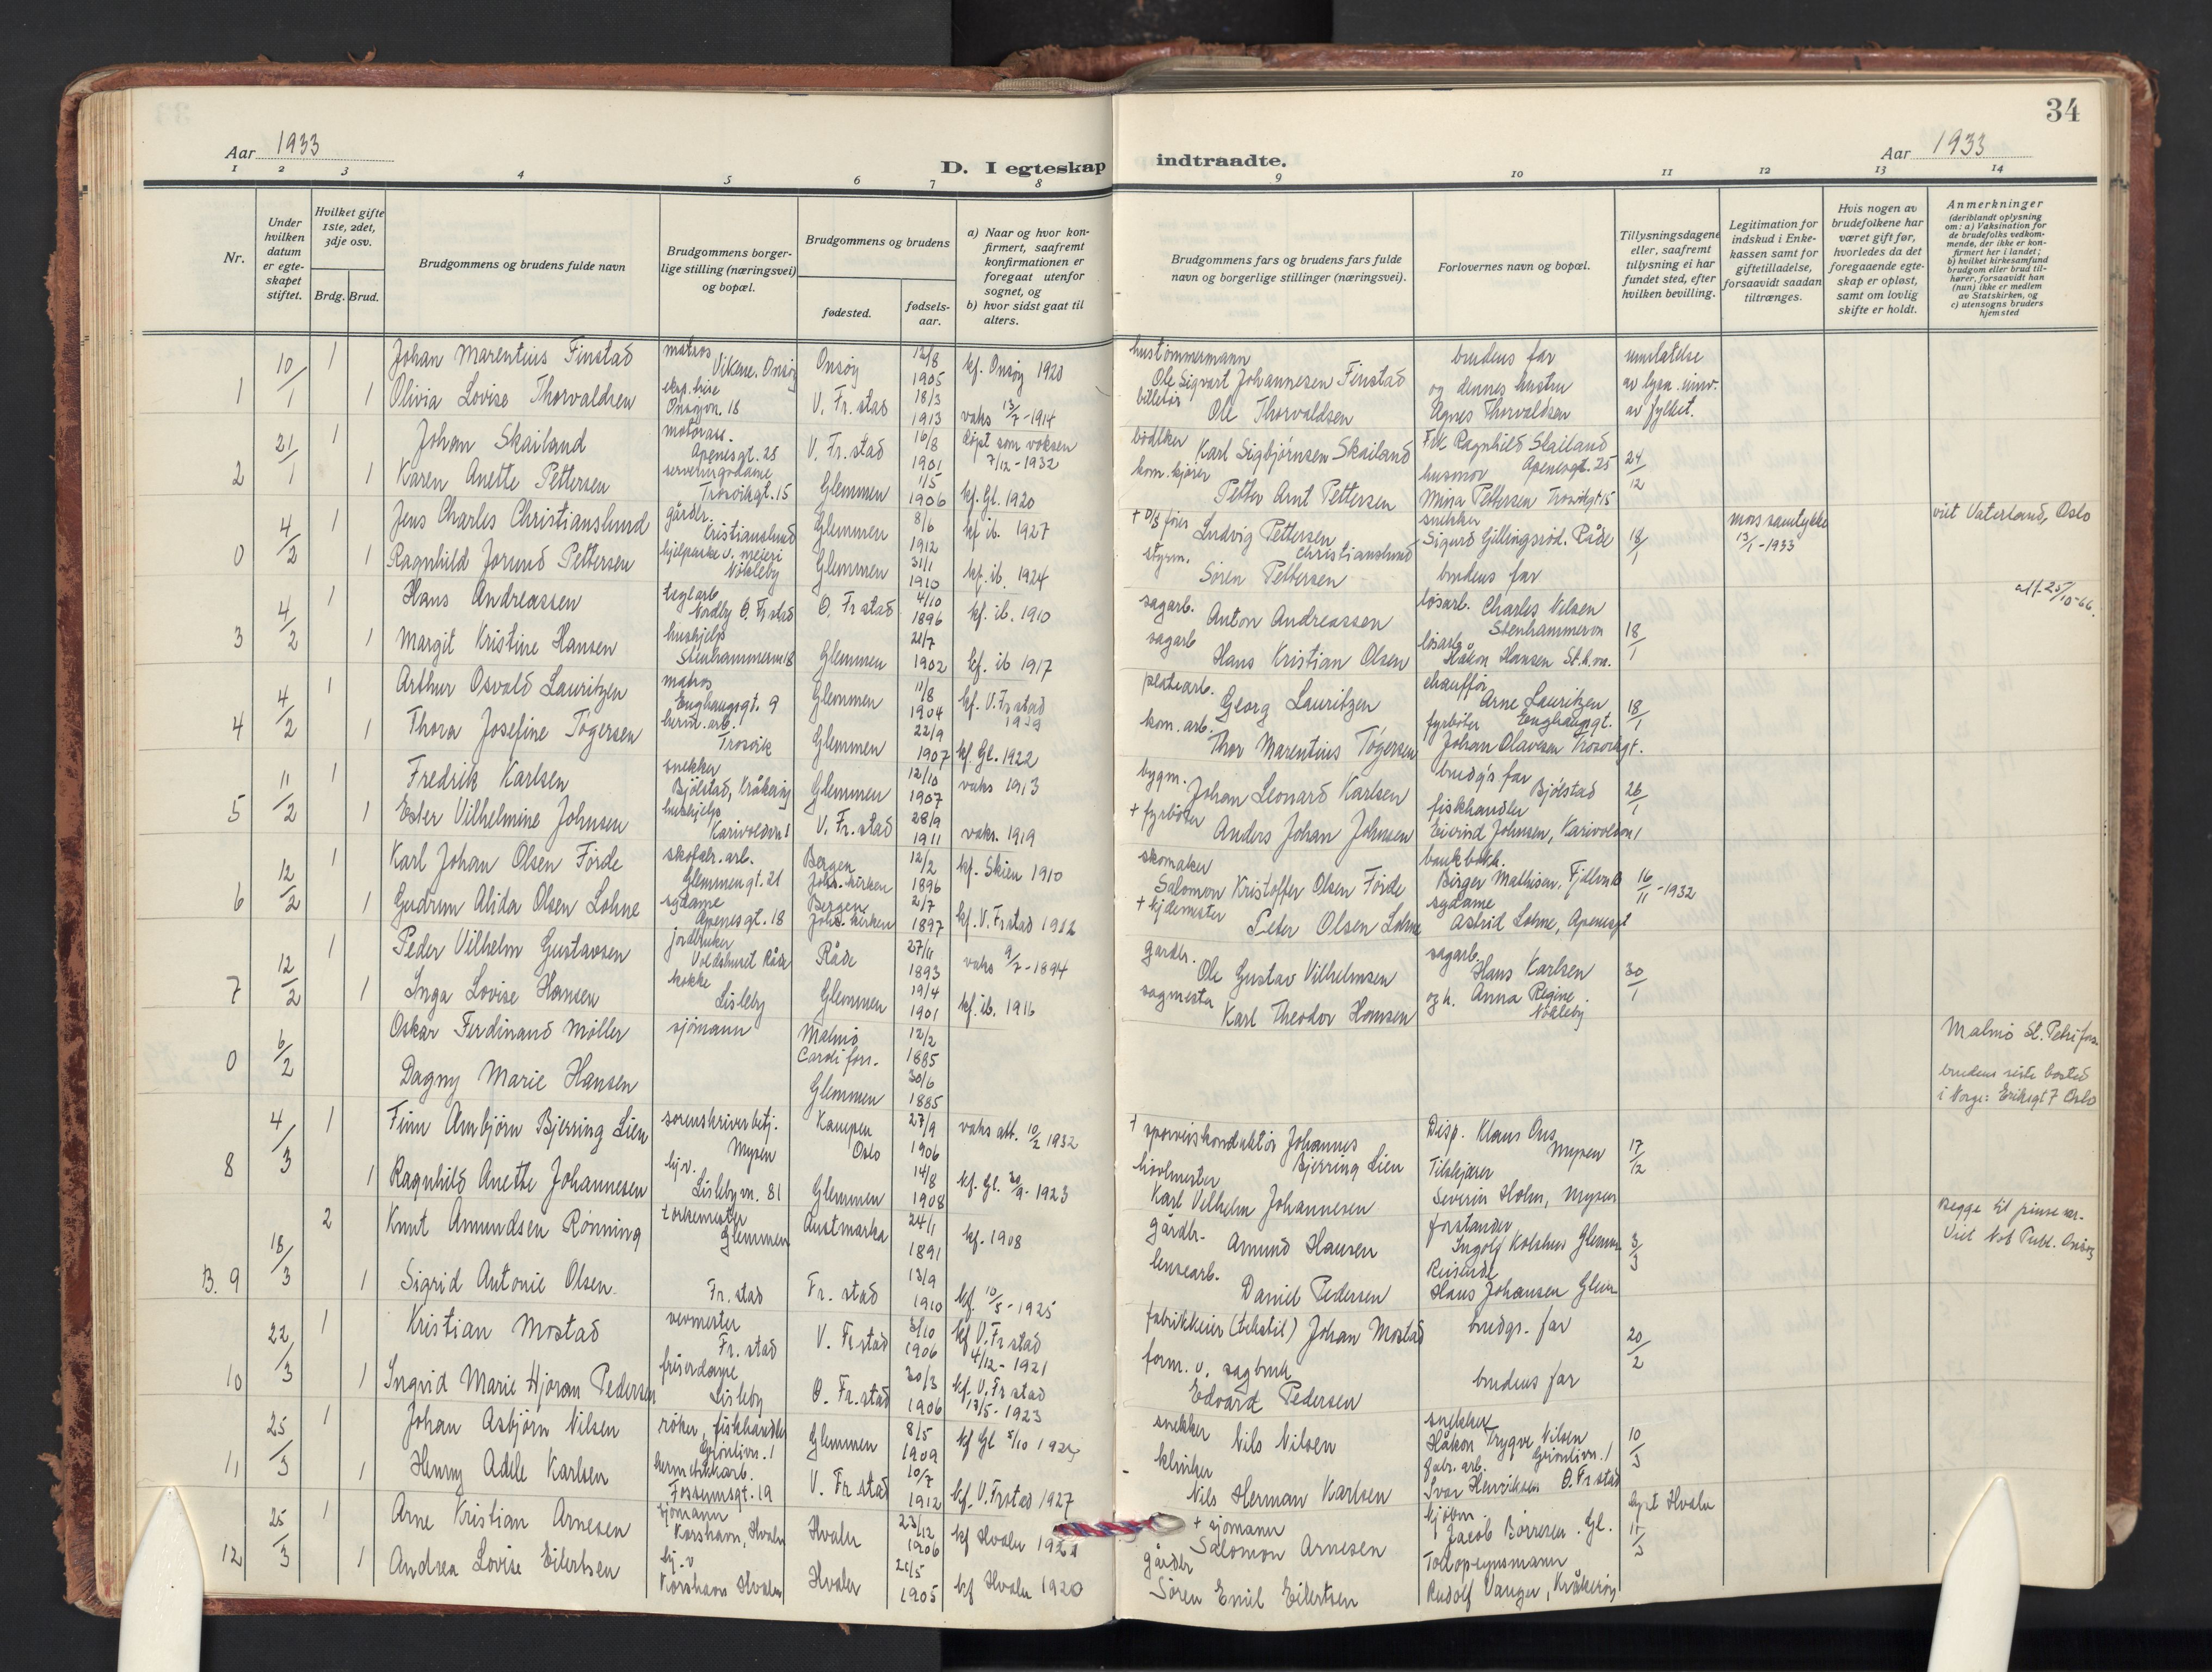 34
Aar 1933
D. I egteskap indtraadte.
Aar 1933
1 2 3 4 5 6 7 8 9 10 11 12 13 14
Nr.
Under hvilken datum er egteskapet stiftet.
Hvilket gifte 1ste, 2det, 3dje osv.
Brdg. Brud.
Brudgommens og brudens fulde navn
Brudgommens borgerlige stilling (næringsvei) og bopæl.
Brudgommens og brudens
fødested.
fødselsaar.
a) Naar og hvor konfirmert, saafremt konfirmationen er foregaat utenfor sognet, og
b) hvor sidst gaat til alters.
Brudgommens fars og brudens fars fulde navn og borgerlige stillinger (næringsvei).
Forlovernes navn og bopæl.
Tillysningsdagene eller, saafremt tillysning ei har fundet sted, efter hvilken bevilling.
Legitimation for indskud i Enkekassen samt for giftetilladelse, forsaavidt saadan tiltrænges.
Hvis nogen av brudefolkene har været gift før, hvorledes da det foregaaende egteskap er opløst, samt om lovlig skifte er holdt.
Anmerkninger
(deriblandt oplysning om: a) Vaksination for de brudefolks vedkommende, der ikke er konfirmert her i landet; b) hvilket kirkesamfund brudgom eller brud tilhører, forsaavidt han (hun) ikke er medlem av Statskirken, og c) utensogns bruders hjemsted
1 10/1 1 Johan Marentius Finstad matros Vikene. Onsøy Onsøy 12/8 1905 kf. Onsøy 1920 hustømmermann Ole Sigvart Johannesen Finstad brudens far
1 Olivia Lovise Thorvaldsen Onsøyvn. 18 V. Fr.stad 18/3 1913 vaks 13/7-1914 billetør Ole Thorvaldsen og dennes hustru Agnes Thorvaldsen av fylket.
2 21/1 1 Johan Skailand Apenesgt. 25 V. Fr.stad 16/8 1901 døpt som voksen 7/12-1932 bødker Karl Sigbjørnsen Skailand Frk Ragnhild Skailand Apenesgt. 25 24/12
1 Karen Anette Pettersen serveringsdame Trosvikgt. 15 Glemmen 1/5 1906 kf. Gl. 1920 kom. kjører Petter Arnt Pettersen husmor Mina Pettersen Trosvikgt 15
0 4/2 1 Jens Charles Christianslund gårdbr. Kristianslund Glemmen 8/6 1912 kf ib. 1927 Ludvig Pettersen Christianslund snekker Sigurd Gillingsrød. Råde 18/1 mors samtykke 13/1-1933 viet Vaterland, Oslo
1 Ragnhild Jorund Pettersen hjelperske v. meieri Nøkleby Glemmen 31/1 1910 kf. ib. 1924 styrm. Søren Pettersen brudens far
3 4/2 1 Hans Andreassen teglarb Nordby Ø. Fr stad Ø. Fr stad 4/10 1896 kf. ib. 1910 sagarb. Anton Andreassen løsarb. Charles Nilsen Stenhammeren 18/1 att. 25/10-66.
1 Margit Kristine Hansen hushjelp Stenhammeren 18 Glemmen 21/7 1902 kf. ib 1917 sagarb Hans Kristian Olsen løsarb. Håkon Hansen St.h.vn.
4 4/2 1 Arthur Osvald Lauritzen matros Enghaugsgt. 9 Glemmen 11/8 1904 kf. V. Fr stad platearb. Georg Lauritzen chauffør Arne Lauritzen Enghaugsgt. 18/1
1 Thora Josefine Tøgersen herm. arb. Trosvik Glemmen 22/9 1907 kf. Gl. 1922 kom. arb. Thor Marentius Tøgersen fyrbøter Johan Olavesen Trosvikgt.
5 11/2 1 Fredrik Karlsen snekker Bjølstad, Kråkerøy Glemmen 12/10 1907 vaks 1913 bygm. Johan Leonard Karlsen brudg's far Bjølstad 26/1
1 Ester Vilhelmine Johnsen hushjelp Karivoldvn 1 V. Fr. stad 28/9 1911 vaks. 1919 + fyrbøter Anders Johan Johnsen fiskhandler Eivind Johnsen, Karivoldvn 1
6 12/2 1 Karl Johan Olsen Førde skofabr. arb. Glemmengt. 21 Bergen Joh. kirken 12/2 1896 kf. Skien 1910 skomaker Salomon Kristoffer Olsen Førde Birger Mathisen, 16/11-1932
1 Gudrun Alida Olsen Lohne sydame Apenesgt. 18 Bergen Joh. kirken 2/7 1897 kf. V. Fr stad 1912 Peter Olsen Lohne sydame Astrid Lohne, Apenesgt
7 12/2 1 Peder Vilhelm Gustavsen jordbruker Voldshuset Råde Råde 27/6 1893 vaks 9/7-1894 gårdbr. Ole Gustav Vilhelmsen sagarb. Hans Karlsen 30/1
1 Inga Lovise Hansen kokke Lisleby Glemmen 19/4 1901 kf. ib. 1916 sagmester Karl Theodor Hansen og h. Anna Regine. Nøkleby
0 6/2 Oskar Ferdinand Møller sjømann Malmø 12/2 1885 Malmö St. Petri fors.
Dagny Marie Hansen Glemmen 30/6 1885 brudens siste bosted i Norge: Eriksgt 7 Oslo
8 4/3 1 Finn Arnbjørn Bjerring Lien sorenskriverbetj. Mysen Kampen Oslo 27/9 1906 vaks att. 10/2 1932 + sporveiskonduktør Johannes Bjerring Lien Disp. Klaus Ous Mysen 17/12
1 Ragnhild Anette Johannesen hj.v. Lislebyvn. 81 Glemmen 14/8 1908 kf. Gl. 30/9-1923 høvlmester Karl Vilhelm Johannesen Tilskjærer Severin Holm, Mysen
B. 9 18/3 2 Knut Amundsen Rønning tørkemester Glemmen Austmarka 24/1 1891 kf. 1908 gårdbr. Amund Hansen forstander Ingolf Kolshus Glemm. 3/3 Begge til pinse
1 Sigrid Antonie Olsen. Fr. stad Fr. stad 13/9 1910 kf. 10/5-1925 lensearb. Daniel Pedersen Reisende Hans Johansen Glem
10 22/3 1 Kristian Mostad vevmester Fr. stad V. Fr stad 3/10 1906 kf V. Fr stad 4/12-1921 fabrikkeier (tekstil) Johan Mostad brudgs. far 20/2
1 Ingrid Marie Hjøran Pedersen friserdame Lisleby Ø. Fr. stad 30/3 1906 kf. V. Fr stad 13/5-1923 form. v. sagbruk Edvard Pedersen brudens far
11 25/3 1 Johan Asbjørn Nilsen røker, fiskhandler Grønlivn. 1 Glemmen 8/5 1909 kf Gl 5/10 snekker Nils Nilsen snekker Håkon Trygve Nilsen Grønlivn. 1 10/3
1 Henny Adele Karlsen hermetikkarb. Fossumsgt. 19 V. Fr stad 10/7 1912 kf. V. Fr stad 1927 klinker Nils Herman Karlsen fabr. arb. Ivar Henriksen Ø. Fr stad
12 25/3 1 Arne Kristian Arnesen sjømann Korshavn, Hvaler Hvaler 23/12 1906 kf Hvaler + sjømann Salomon Arnesen kjøbm. Jacob Børresen. Gl. Hvaler
1 Andrea Lovise Eilertsen hj. v Korshavn Hvaler Hvaler 1905 kf Hvaler 1920 gårdbr Søren Emil Eilertsen Tollopsynsmann Rudolf Vauger, Kråkerøy